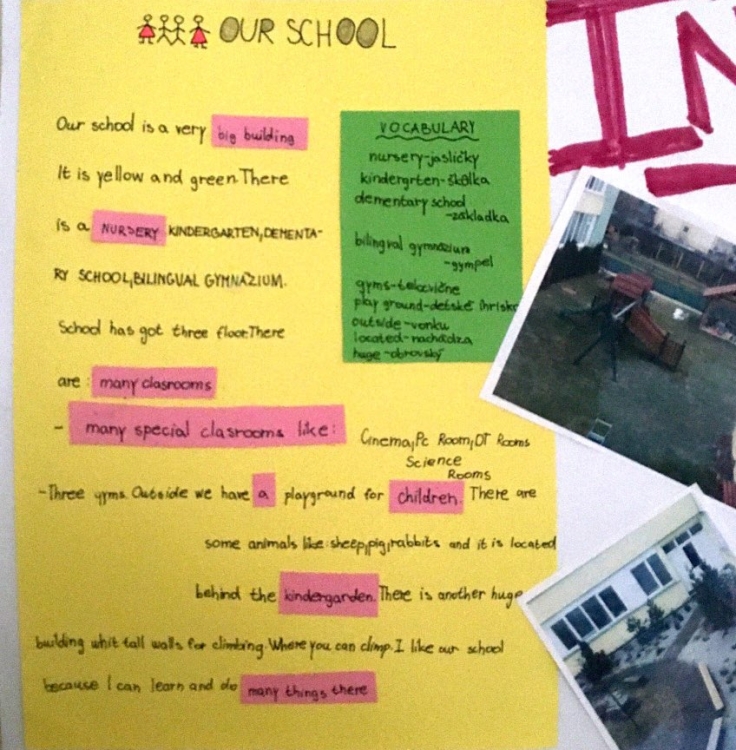 OUR SCHOOL
Our school is a very big building
It is yellow and green. There
is a NURSERY KINDERGARTEN, ELEMENTA-
RY SCHOOL, BILINGUAL GYMNÁZIUM.
School has got three floor. There
are: many clasrooms
- many special clasrooms like:
Cinema, Pc Room, DT Rooms
Science
Rooms
-Three gyms. Outside we have a playground for children. There are
some animals like: sheep, pig, rabbits and it is located
behind the kindergarden. There is another huge
building whit tall walls for climbing. Where you can climp. I like our school
because I can learn and do many things there
VOCABULARY
nursery-jasličky
kindergrten-škôlka
elementary school
-základka
bilingval gymnázium
-gympel
gyms-telocvične
play ground-detské ihrisko
outside-vonku
located-nachádza
huge-obrovský
IN